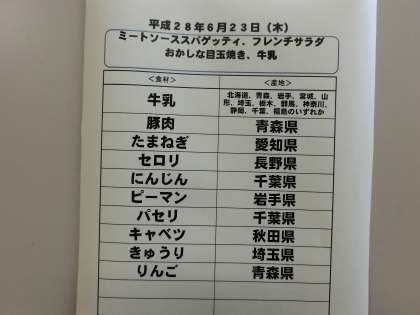 平成28年6月23日（木）
ミートソーススパゲッティ、フレンチサラダ
おかしな目玉焼き、牛乳
＜食材＞ ＜産地＞
牛乳 北海道、青森、岩手、宮城、山
形、埼玉、栃木、群馬、神奈川、
静岡、千葉、福島のいずれか
豚肉 青森県
たまねぎ 愛知県
セロリ 長野県
にんじん 千葉県
ピーマン 岩手県
パセリ 千葉県
キャベツ 秋田県
きゅうり 埼玉県
りんご 青森県